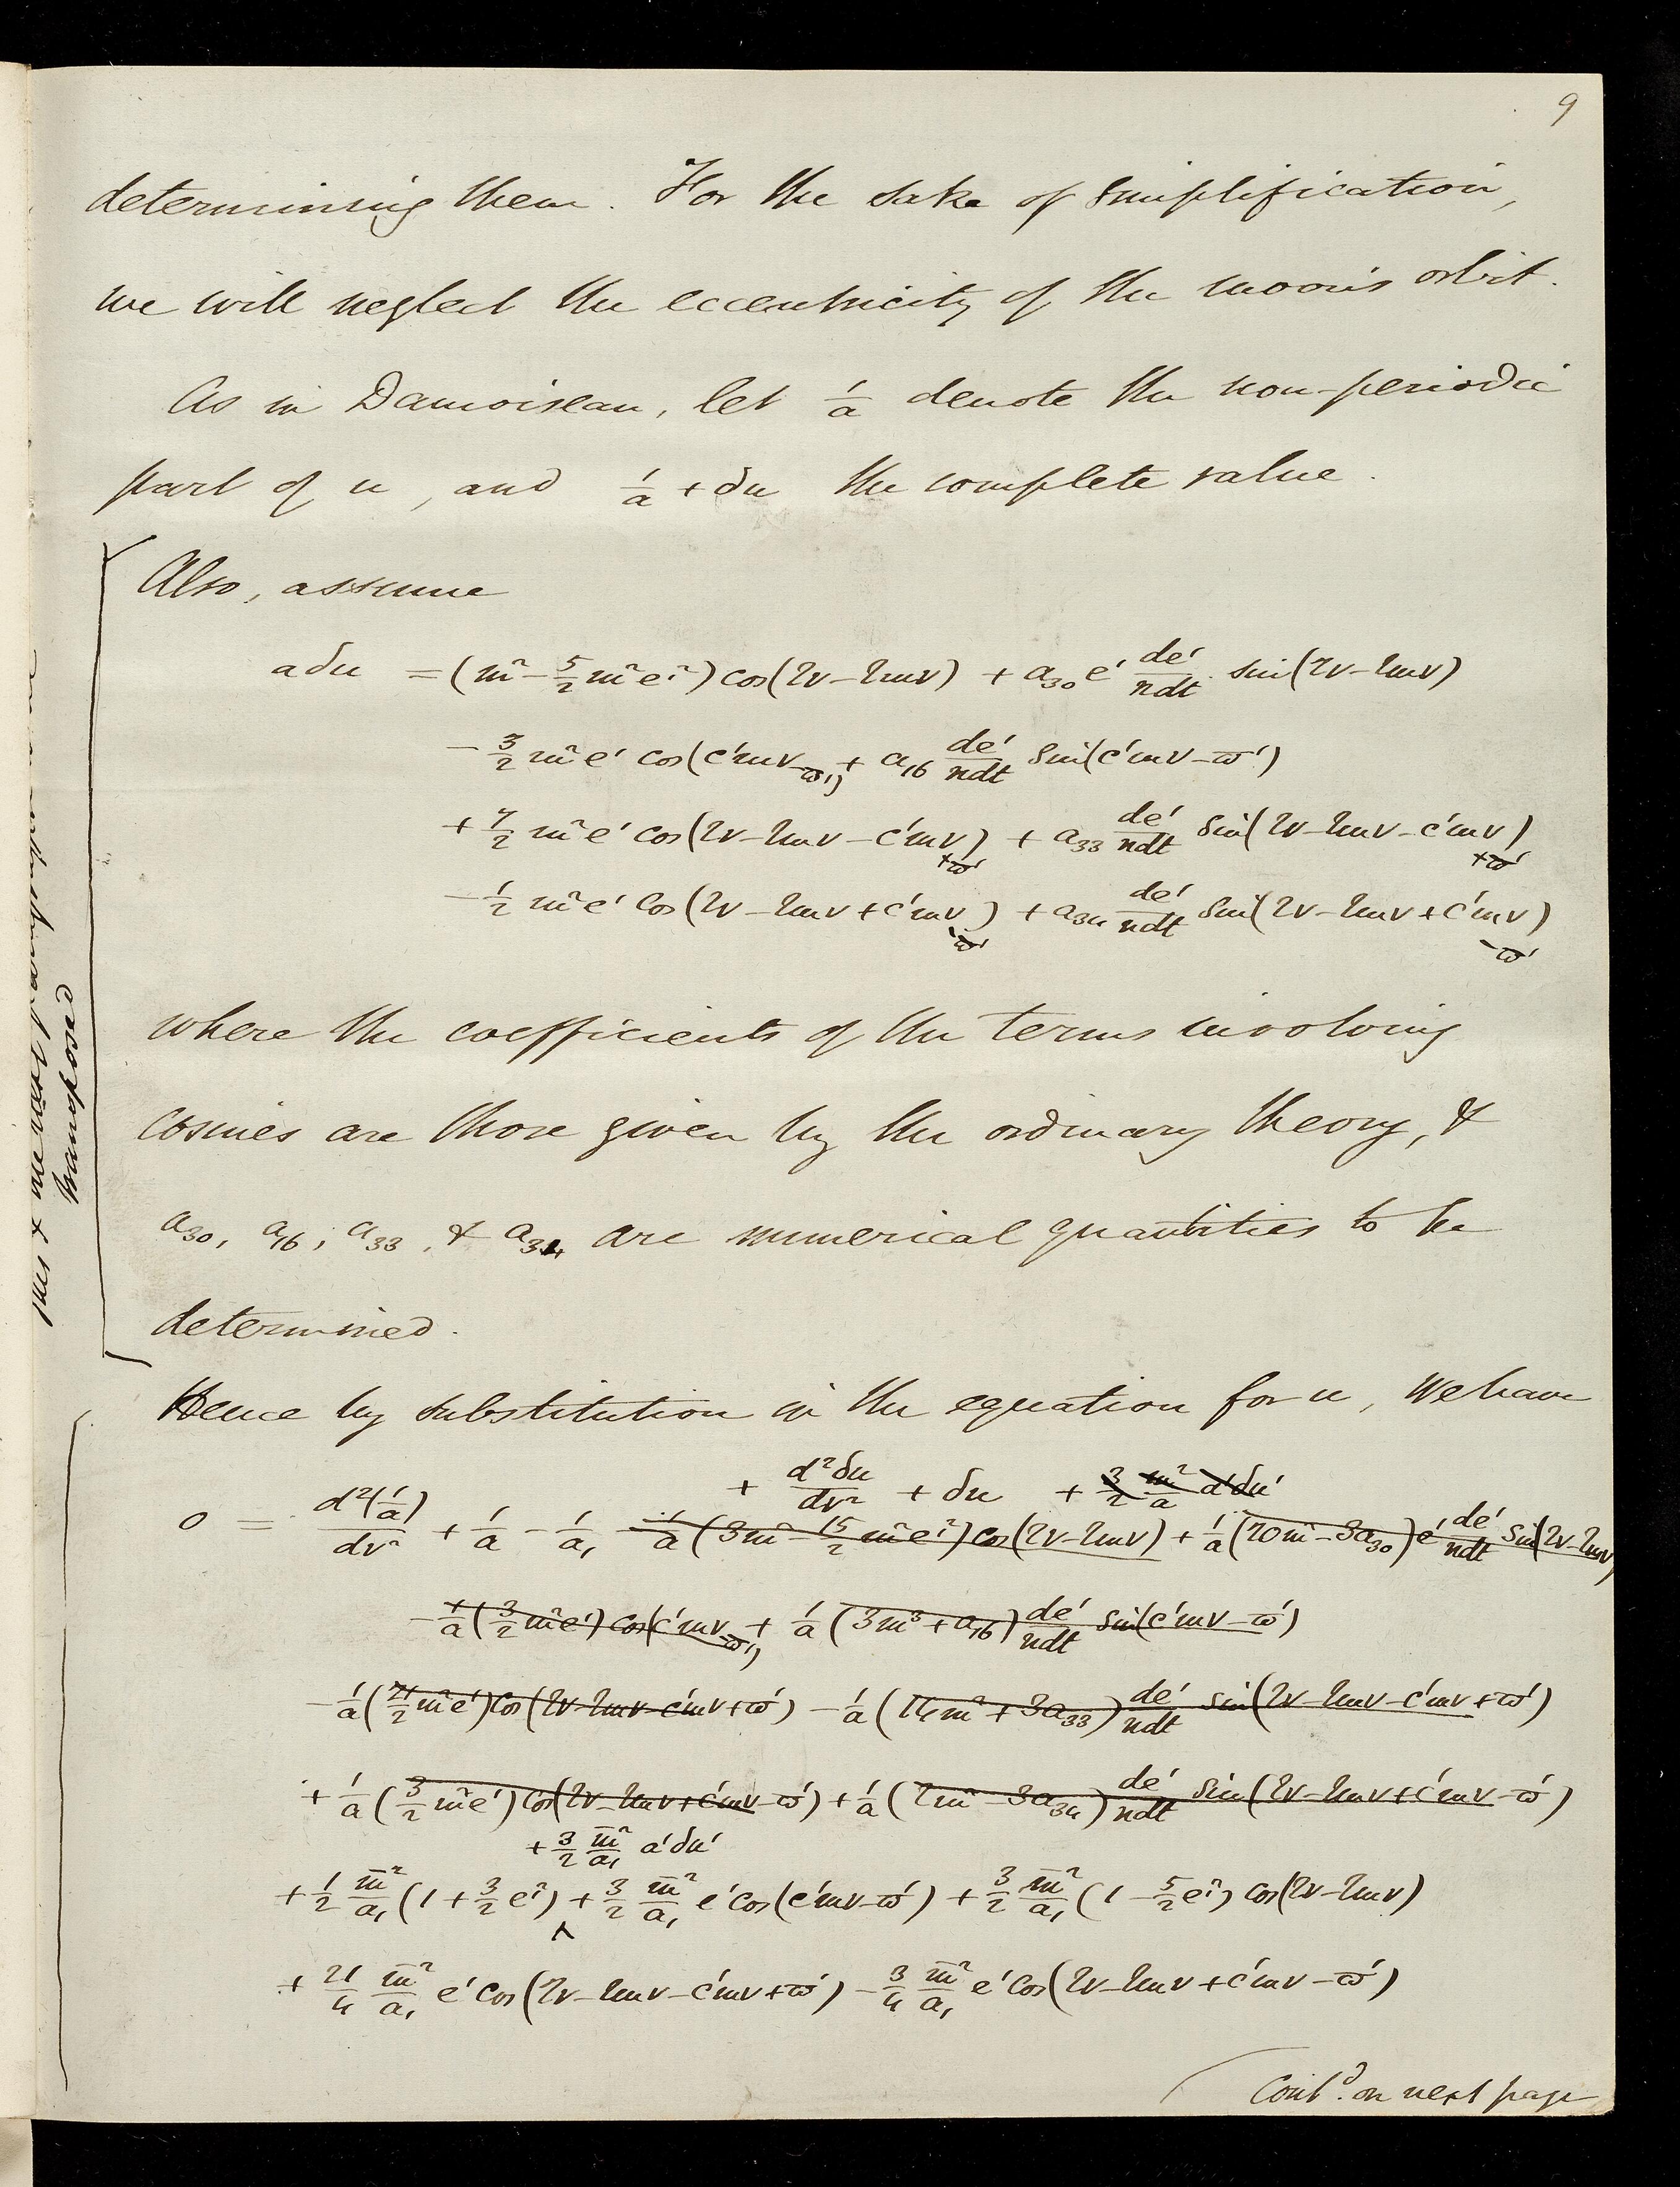 9
determining them. For the sake of simplification,
we will neglect the eccentricity of the moon's orbit.
As in Damoiseau, let 1/a denote the non-periodic
part of u, and 1/a + δu the complete value.
Also, assume
aδu = (m² − 5/2 m²e'²) cos(2ν−2mν) + a₃₀ e' de'/ndt sin(2ν−2mν)
− 3/2 m²e' cos(c'mν−ϖ') + a₁₆ de'/ndt sin(c'mν−ϖ')
+ 7/2 m²e' cos(2ν−2mν−c'mν+ϖ') + a₃₃ de'/ndt sin(2ν−2mν−c'mν+ϖ')
− 1/2 m²e' cos(2ν−2mν+c'mν−ϖ') + a₃₄ de'/ndt sin(2ν−2mν+c'mν−ϖ')
where the coefficients of the terms involving
cosines are those given by the ordinary theory, &
a₃₀, a₁₆, a₃₃, & a₃₄ are numerical quantities to be
determined.
this & the next paragraph
transposed
Hence by substitution in the equation for u, we have
+ d²δu/dν² + δu + 3/2 m̅²/a a'δu'
0 = d²(1/a)/dν² + 1/a − 1/a₁ − 1/a (3m² − 15/2 m²e'²) cos(2ν−2mν) + 1/a (20m² − 3a₃₀) e' de'/ndt sin(2ν−2mν)
− 1/a (3/2 m²e') cos(c'mν−ϖ') + 1/a (3m³ + a₁₆) de'/ndt sin(c'mν−ϖ')
− 1/a (21/2 m²e') cos(2ν−2mν−c'mν+ϖ') − 1/a (14m² + 3a₃₃) de'/ndt sin(2ν−2mν−c'mν+ϖ')
+ 1/a (3/2 m²e') cos(2ν−2mν+c'mν−ϖ') + 1/a (2m² − 3a₃₄) de'/ndt sin(2ν−2mν+c'mν−ϖ')
+ 3/2 m̅²/a₁ a'δu'
+ 1/2 m̅²/a₁ (1 + 3/2 e'²) + 3/2 m̅²/a₁ e' cos(c'mν−ϖ') + 3/2 m̅²/a₁ (1 − 5/2 e'²) cos(2ν−2mν)
+ 21/4 m̅²/a₁ e' cos(2ν−2mν−c'mν+ϖ') − 3/4 m̅²/a₁ e' cos(2ν−2mν+c'mν−ϖ')
Contd. on next page